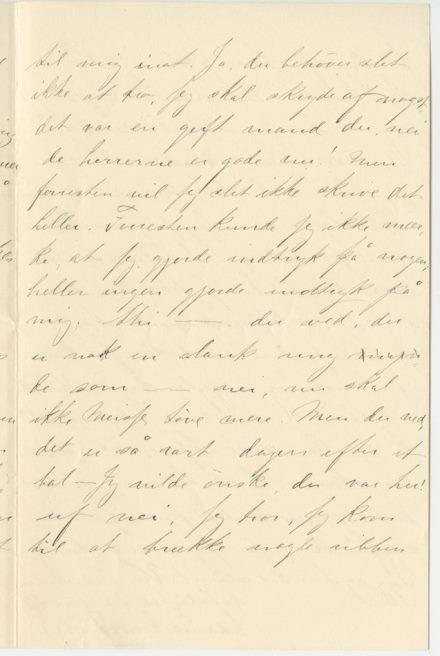 til mig inat. Ja, du behöver slet
ikke at tro, jeg skal skryde af noget,
det var en gift mand du, nei
de herrerne er gode nu! Men
foresten vil jeg slet ikke skrive det
heller. Foresten kunde jeg ikke mær-
ke, at jeg gjorde indtryk på nogen,
heller ingen gjorde indtryk på
mig. — du ved, der
er nok en slank ung
de som — nei, nu skal
ikke töve mere. Men du ved,
det er så rart dagen efter et
bal — Jeg vilde önske, du var her!
uf nei, jeg tror, jeg kom
til at brække nogle ribben